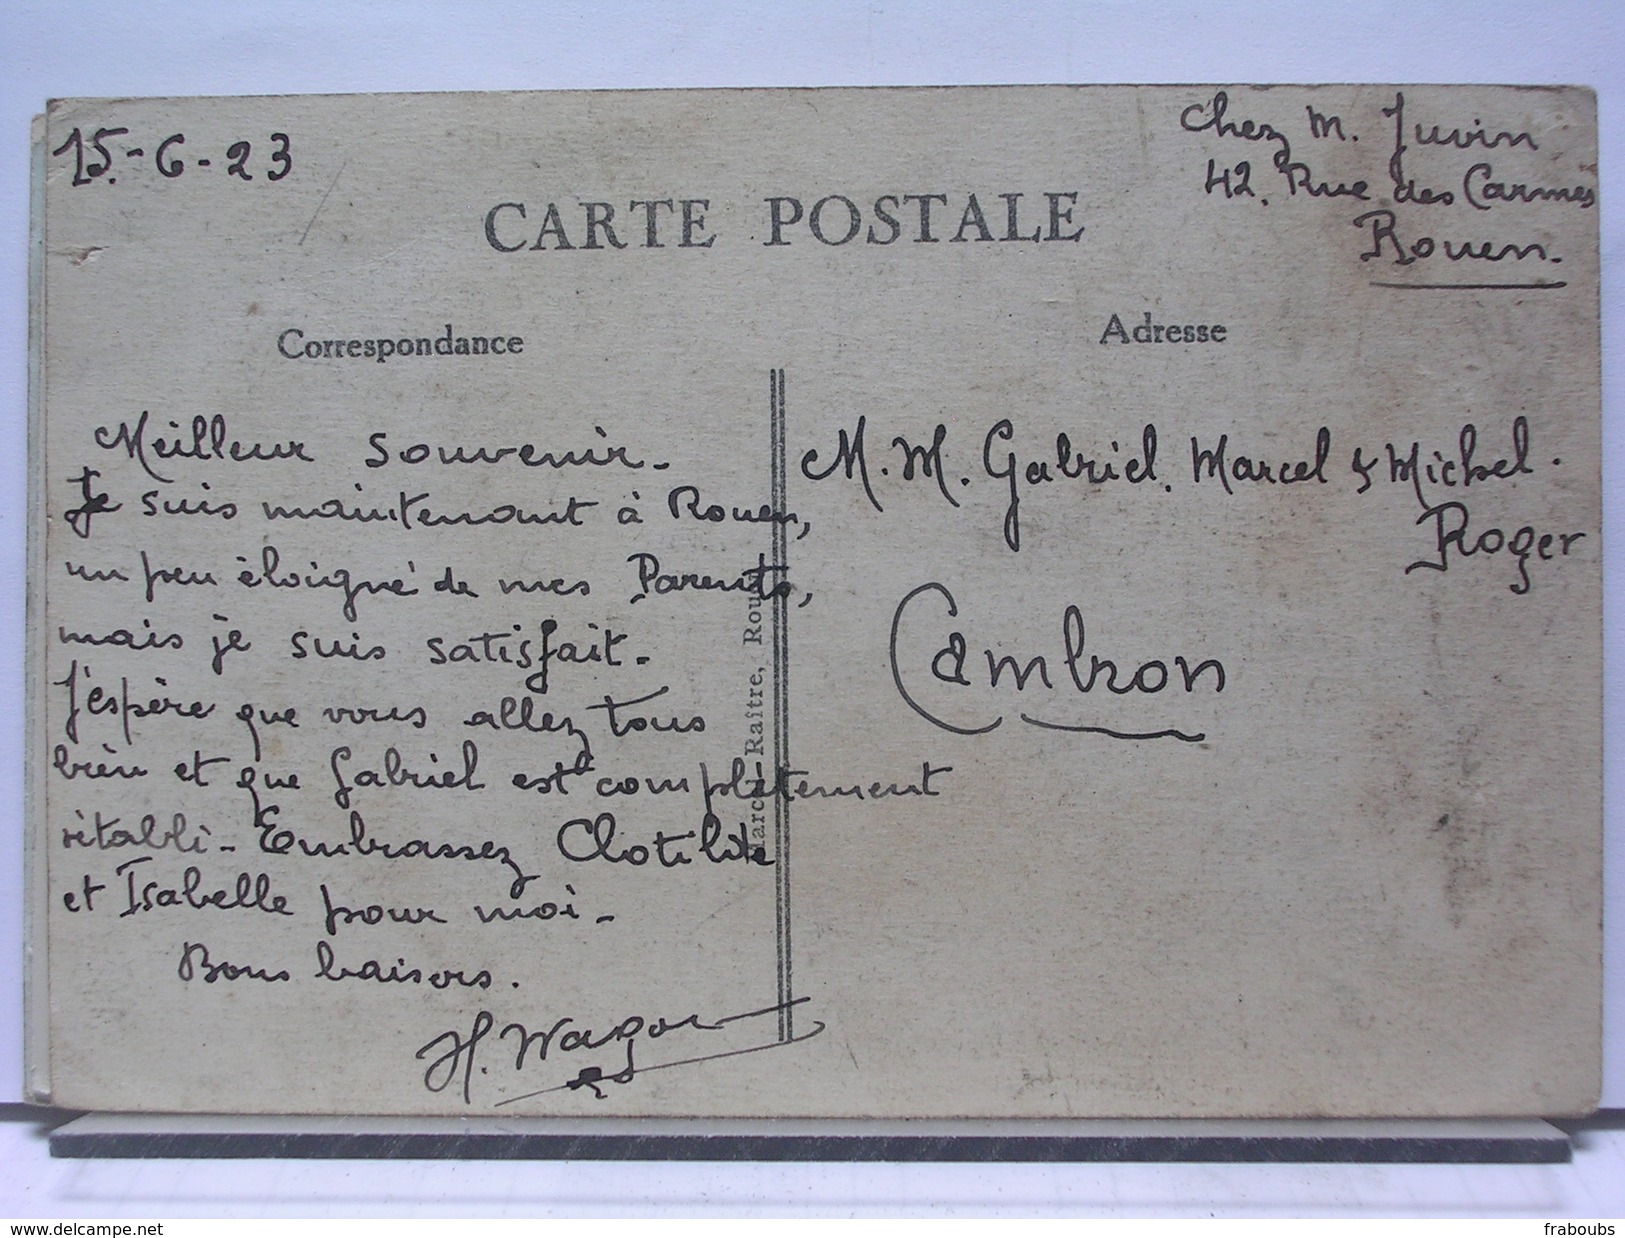 15-6-23
Chez M. Juvin
42, Rue des Carmes
Rouen-
CARTE POSTALE
Correspondance
Adresse
Meilleur souvenir-
Je suis maintenant à Rouen,
un peu éloigné de mes Parents,
mais je suis satisfait-
J'espère que vous allez tous
bien et que Gabriel est complètement
rétabli- Embrassez Clotilde
et Isabelle pour moi-
Bons baisers.
M.M. Gabriel, Marcel & Michel.
Roger
Cambron
Raître, Rouen
www.delcampe.net
fraboubs